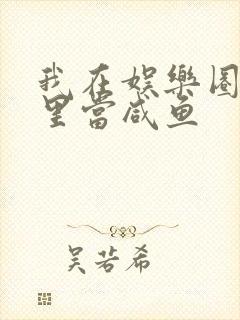 我在娱乐圈
里当咸鱼
吴若希